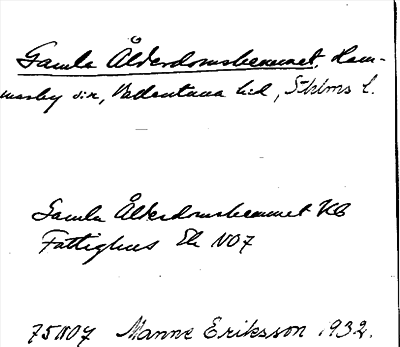 Gamla Ålderdomshemmet, Ham-
marby sn, Vallentuna hd, Sthlms l.
Gamla Ålderdomshemmet KB
Fattighus Ek NO7
75NO7 Manne Eriksson 1932.